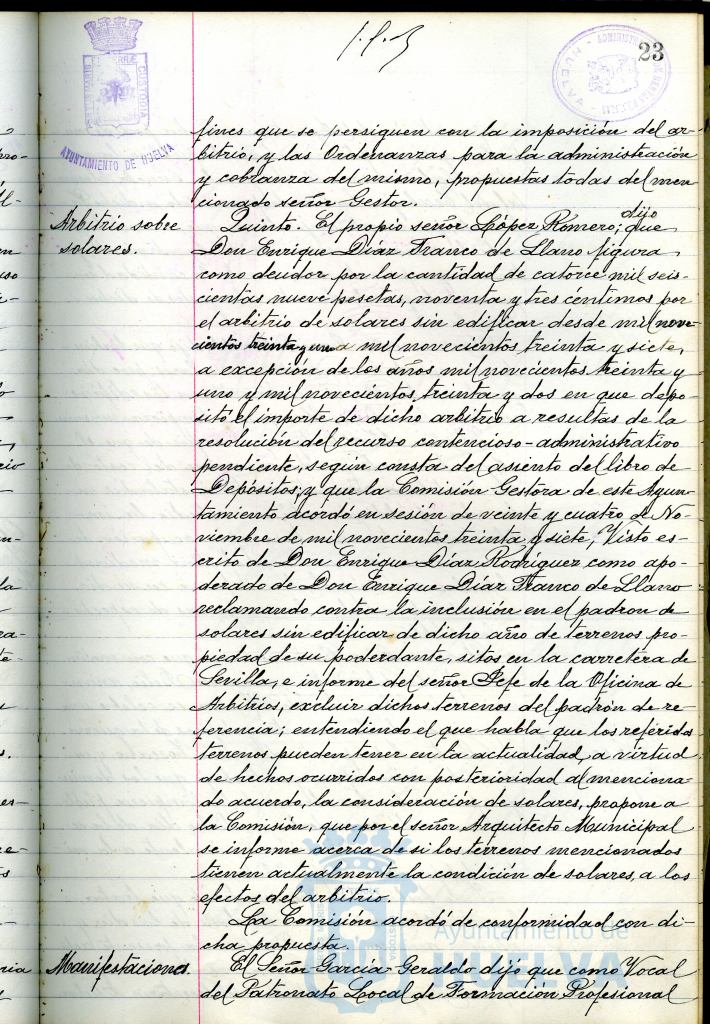 23
AYUNTAMIENTO DE HUELVA
HUELVA
fines que se persiguen con la imposición del ar-
bitrio, y las Ordenanzas para la administración
y cobranza del mismo, propuestas todas del men
cionado señor Gestor.
Arbitrio sobre
solares.
Quinto. El propio señor López Romero, dijo que
Don Enrique Díaz Franco de Llano figura
como deudor por la cantidad de catorce mil seis-
cientas nueve pesetas, noventa y tres céntimos por
el arbitrio de solares sin edificar desde mil nove-
cientos treinta y uno a mil novecientos treinta y siete,
a excepción de los años mil novecientos treinta y
uno y mil novecientos treinta y dos en que depo-
sitó el importe de dicho arbitrio a resultas de la
resolución del recurso contencioso-administrativo
pendiente, según consta del asiento del libro de
Depósitos; y que la Comisión Gestora de este Ayun-
tamiento acordó en sesión de veinte y cuatro de No-
viembre de mil novecientos treinta y siete, Visto es-
crito de Don Enrique Díaz Rodríguez como apo-
derado de Don Enrique Díaz Franco de Llano
reclamando contra la inclusión en el padron de
solares sin edificar de dicho año de terrenos pro-
piedad de su poderdante, sitos en la carretera de
Sevilla, e informe del señor Jefe de la Oficina de
Arbitrios, excluir dichos terrenos del padrón de re-
ferencia; entendiendo el que habla que los referidos
terrenos pueden tener en la actualidad, a virtud
de hechos ocurridos con posterioridad al menciona-
do acuerdo, la consideración de solares, propone a
la Comisión, que por el señor Arquitecto Municipal
se informe acerca de si los terrenos mencionados
tienen actualmente la condición de solares, a los
efectos del arbitrio.
La Comisión acordó de conformidad con di-
cha propuesta.
Manifestaciones.
El Señor García Geraldo dijo que como Vocal
del Patronato Local de Formación Profesional
Ayuntamiento de
HUELVA